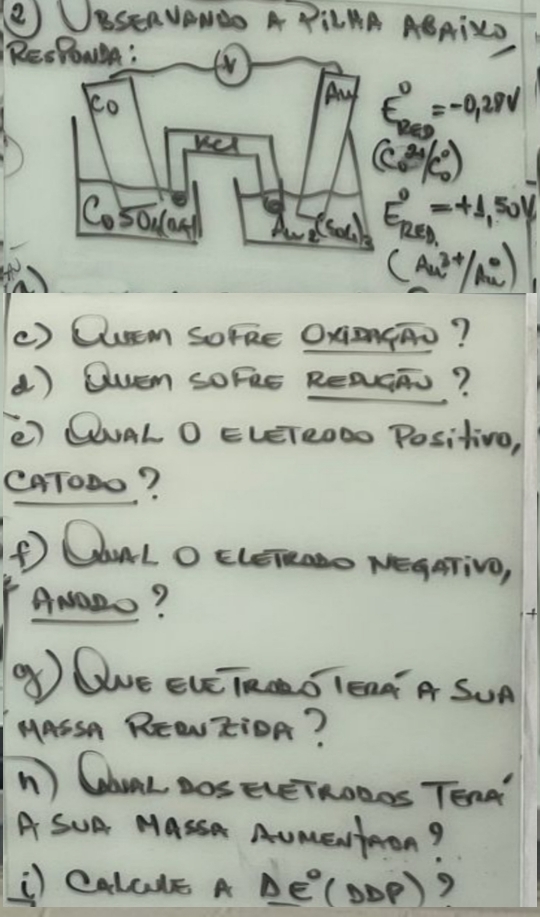 2) OBSERVANDO A PILHA ABAIXO,
RESPONDA:
V
Co
Au
KCl
E°RED = -0,28V
(Co2+/Co°)
CoSO4(aq)
Au2(SO4)3
E°RED. = +1,50V
(Au3+/Au°)
c) QUEM SOFRE OXIDAÇÃO?
d) QUEM SOFRE REDUÇÃO?
e) QUAL O ELETRODO POSITIVO,
CATODO?
f) QUAL O ELETRODO NEGATIVO,
ANODO?
g) QUE ELETRODO TERÁ A SUA
MASSA REDUZIDA?
h) QUAL DOS ELETRODOS TERÁ
A SUA MASSA AUMENTADA?
i) CALCULE A ΔE° (DDP)?